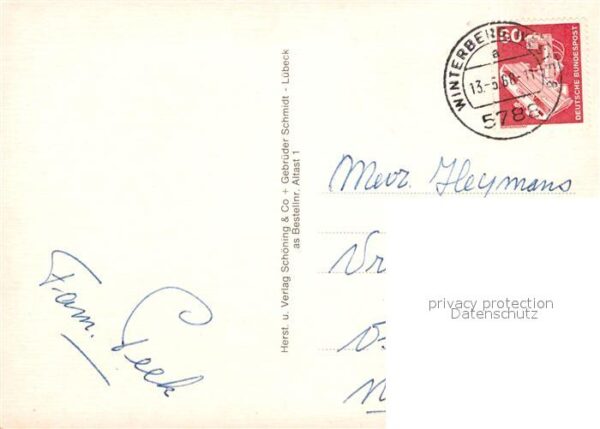 WINTERBERG
a
5788
60
DEUTSCHE BUNDESPOST
Herst. u. Verlag Schöning & Co + Gebrüder Schmidt - Lübeck
as Bestellnr. Altast 1
Mevr. Heymans
Vr
privacy protection
Datenschutz
Fam. Peek